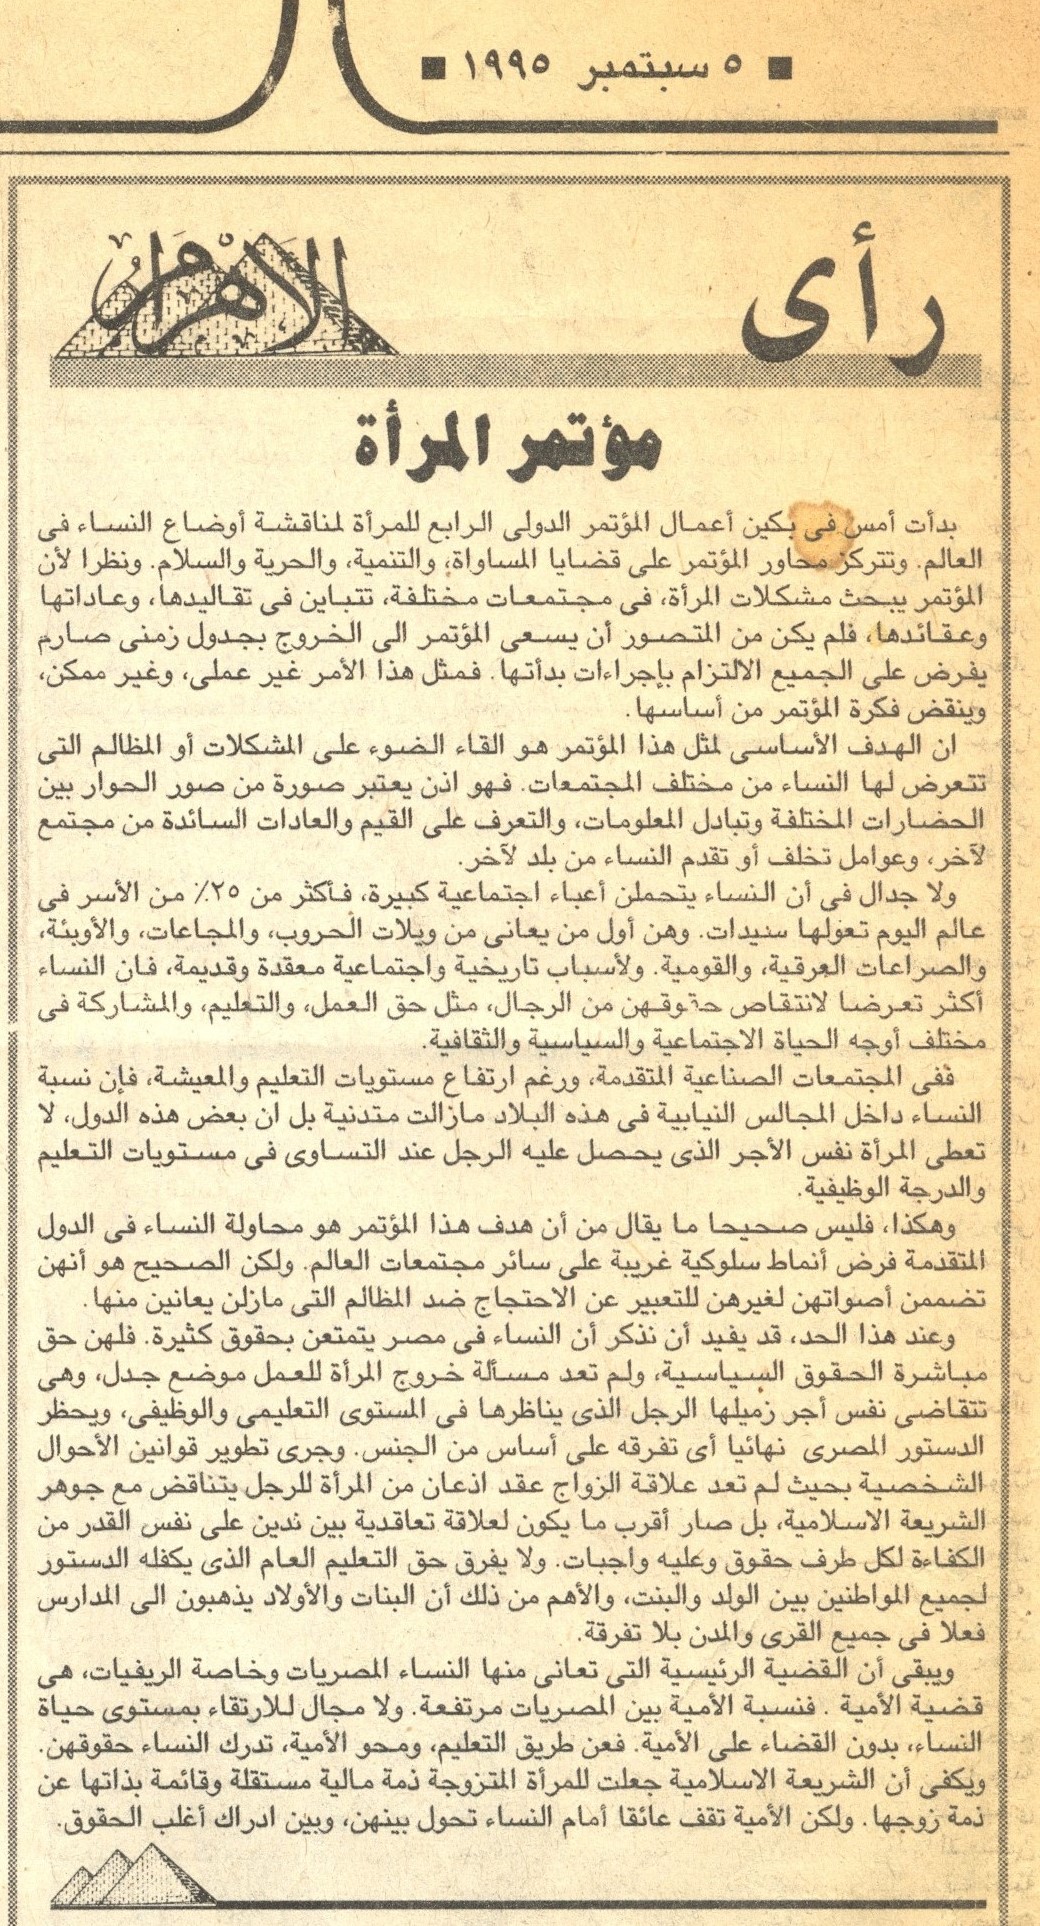 ٥ سبتمبر ١٩٩٥
رأى
الاهرام
مؤتمر المرأة
بدأت أمس فى بكين أعمال المؤتمر الدولى الرابع للمرأة لمناقشة أوضاع النساء فى
العالم. وتتركز محاور المؤتمر على قضايا المساواة، والتنمية، والحرية والسلام. ونظرا لأن
المؤتمر يبحث مشكلات المرأة، فى مجتمعات مختلفة، تتباين فى تقاليدها، وعاداتها
وعقائدها، فلم يكن من المتصور أن يسعى المؤتمر الى الخروج بجدول زمنى صارم
يفرض على الجميع الالتزام بإجراءات بدأتها. فمثل هذا الأمر غير عملى، وغير ممكن،
وينقض فكرة المؤتمر من أساسها.
ان الهدف الأساسى لمثل هذا المؤتمر هو القاء الضوء على المشكلات أو المظالم التى
تتعرض لها النساء من مختلف المجتمعات. فهو اذن يعتبر صورة من صور الحوار بين
الحضارات المختلفة وتبادل المعلومات، والتعرف على القيم والعادات السائدة من مجتمع
لآخر، وعوامل تخلف أو تقدم النساء من بلد لآخر.
ولا جدال فى أن النساء يتحملن أعباء اجتماعية كبيرة، فأكثر من ٢٥٪ من الأسر فى
عالم اليوم تعولها سيدات. وهن أول من يعانى من ويلات الحروب، والمجاعات، والأوبئة،
والصراعات العرقية، والقومية. ولأسباب تاريخية واجتماعية معقدة وقديمة، فان النساء
أكثر تعرضا لانتقاص حقوقهن من الرجال، مثل حق العمل، والتعليم، والمشاركة فى
مختلف أوجه الحياة الاجتماعية والسياسية والثقافية.
ففى المجتمعات الصناعية المتقدمة، ورغم ارتفاع مستويات التعليم والمعيشة، فإن نسبة
النساء داخل المجالس النيابية فى هذه البلاد مازالت متدنية بل ان بعض هذه الدول، لا
تعطى المرأة نفس الأجر الذى يحصل عليه الرجل عند التساوى فى مستويات التعليم
والدرجة الوظيفية.
وهكذا، فليس صحيحا ما يقال من أن هدف هذا المؤتمر هو محاولة النساء فى الدول
المتقدمة فرض أنماط سلوكية غريبة على سائر مجتمعات العالم. ولكن الصحيح هو أنهن
تضممن أصواتهن لغيرهن للتعبير عن الاحتجاج ضد المظالم التى مازلن يعانين منها.
وعند هذا الحد، قد يفيد أن نذكر أن النساء فى مصر يتمتعن بحقوق كثيرة. فلهن حق
مباشرة الحقوق السياسية، ولم تعد مسألة خروج المرأة للعمل موضع جدل، وهى
تتقاضى نفس أجر زميلها الرجل الذى يناظرها فى المستوى التعليمى والوظيفى، ويحظر
الدستور المصرى نهائيا أى تفرقه على أساس من الجنس. وجرى تطوير قوانين الأحوال
الشخصية بحيث لم تعد علاقة الزواج عقد اذعان من المرأة للرجل يتناقض مع جوهر
الشريعة الاسلامية، بل صار أقرب ما يكون لعلاقة تعاقدية بين ندين على نفس القدر من
الكفاءة لكل طرف حقوق وعليه واجبات. ولا يفرق حق التعليم العام الذى يكفله الدستور
لجميع المواطنين بين الولد والبنت، والأهم من ذلك أن البنات والأولاد يذهبون الى المدارس
فعلا فى جميع القرى والمدن بلا تفرقة.
ويبقى أن القضية الرئيسية التى تعانى منها النساء المصريات وخاصة الريفيات، هى
قضية الأمية . فنسبة الأمية بين المصريات مرتفعة. ولا مجال للارتقاء بمستوى حياة
النساء، بدون القضاء على الأمية. فعن طريق التعليم، ومحو الأمية، تدرك النساء حقوقهن.
ويكفى أن الشريعة الاسلامية جعلت للمرأة المتزوجة ذمة مالية مستقلة وقائمة بذاتها عن
ذمة زوجها. ولكن الأمية تقف عائقا أمام النساء تحول بينهن، وبين ادراك أغلب الحقوق.